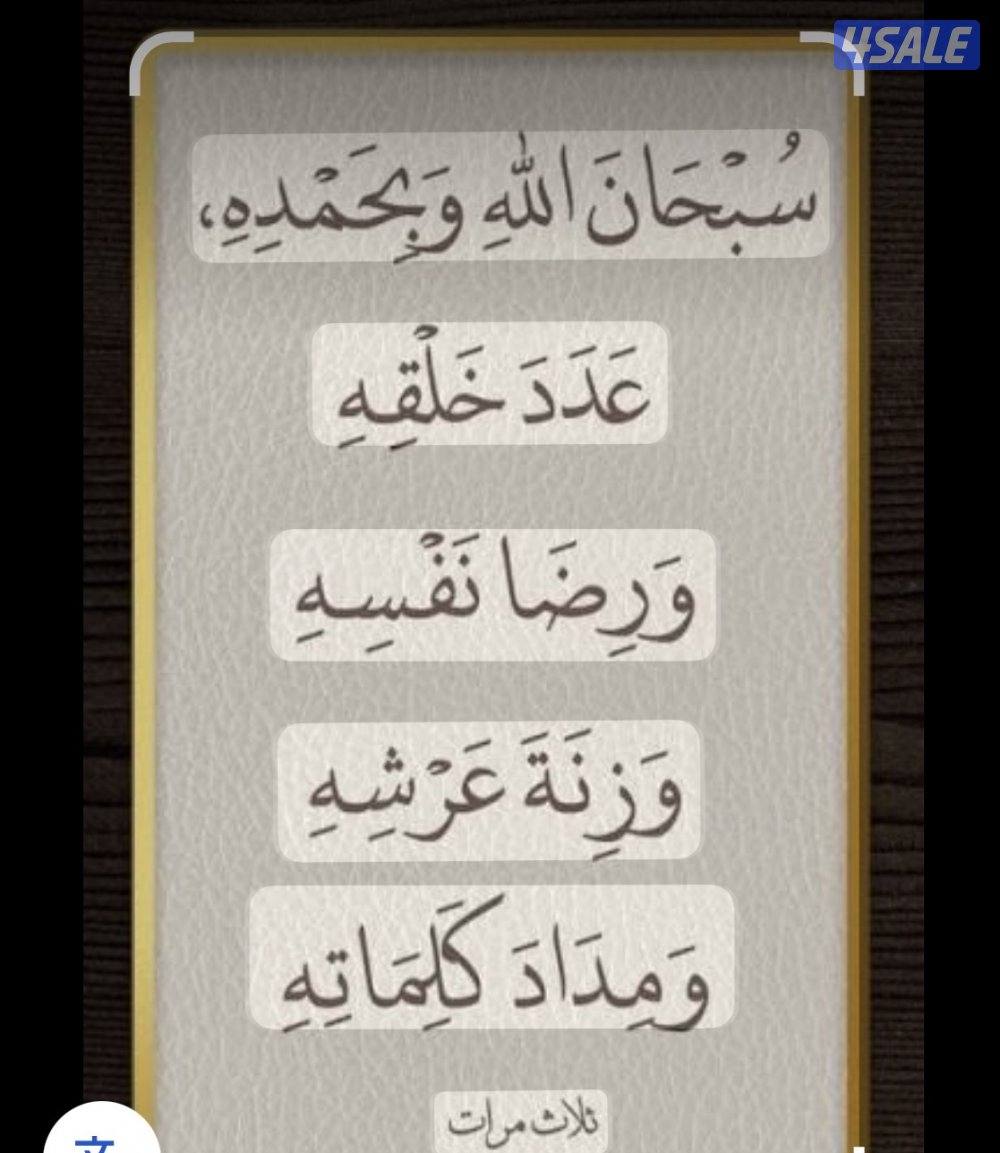 4SALE
سُبْحَانَ اللهِ وَبِحَمْدِهِ،
عَدَدَ خَلْقِهِ
وَرِضَا نَفْسِهِ
وَزِنَةَ عَرْشِهِ
وَمِدَادَ كَلِمَاتِهِ
ثلاث مرات
文